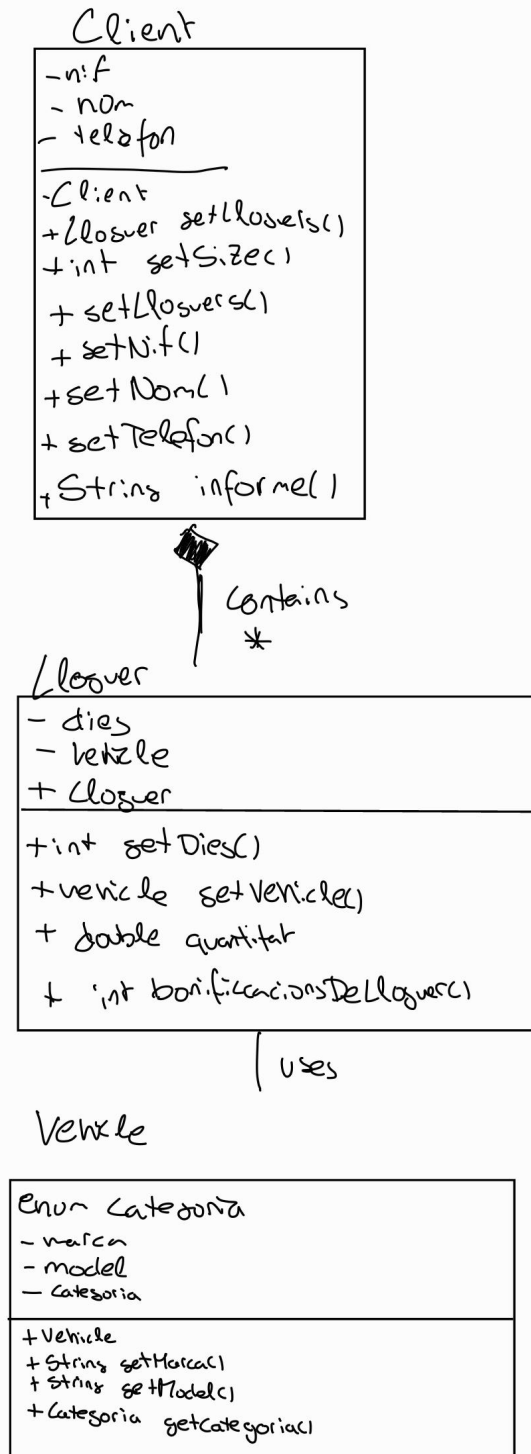 Client
- nif
- nom
- telefon
- Client
+ Lloguer getLloguers()
+ int getSize()
+ setLloguers()
+ setNif()
+ setNom()
+ setTelefon()
+ String informe()
Contains
*
Lloguer
- dies
- vehicle
+ Lloguer
+ int getDies()
+ vehicle getVehicle()
+ double quantitat
+ int bonificacionsDeLloguer()
uses
Vehicle
enum Categoria
- marca
- model
- categoria
+ Vehicle
+ String getMarca()
+ String getModel()
+ Categoria getCategoria()